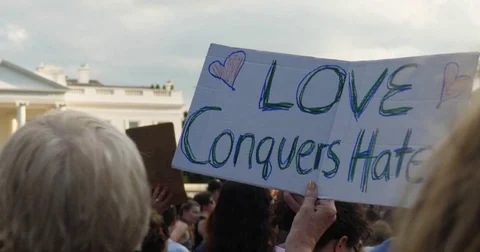 LOVE
Conquers Hate